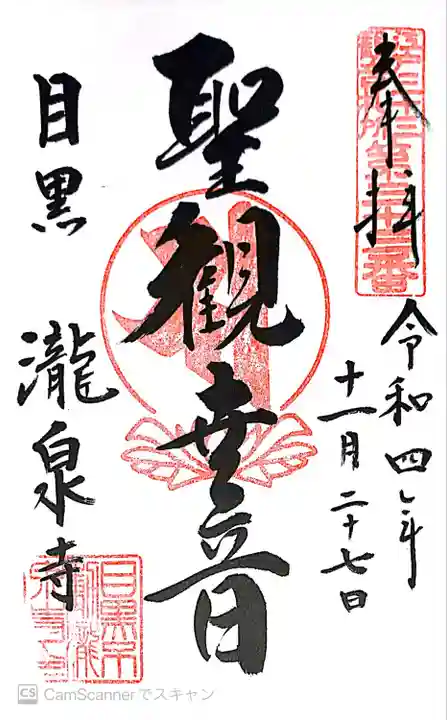 奉拝
第三十三番
令和四年
十一月二十七日
聖観世音
目黒 瀧泉寺
CS CamScannerでスキャン